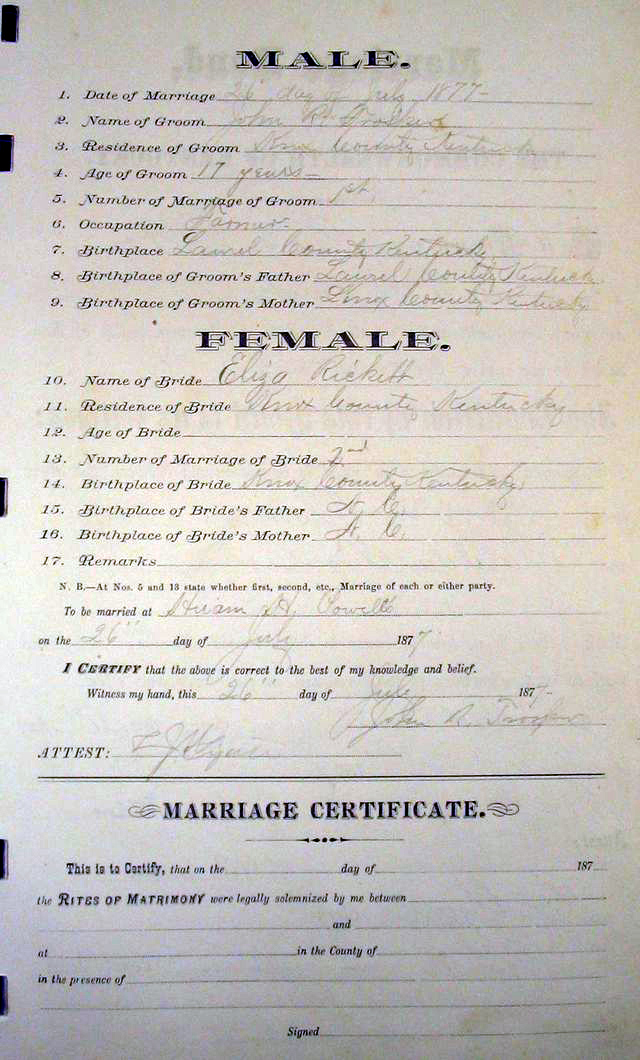 MALE.
1. Date of Marriage 26" day of July 1877-
2. Name of Groom John R.
3. Residence of Groom Knox County Kentucky
4. Age of Groom 17 years-
5. Number of Marriage of Groom 1st.
6. Occupation Farmer.
7. Birthplace Laurel County Kentucky
8. Birthplace of Groom's Father Laurel County Kentucky
9. Birthplace of Groom's Mother Knox County Kentucky
FEMALE.
10. Name of Bride Eliza Rickett
11. Residence of Bride Knox County Kentucky
12. Age of Bride
13. Number of Marriage of Bride 2nd
14. Birthplace of Bride Knox County Kentucky
15. Birthplace of Bride's Father N. C.
16. Birthplace of Bride's Mother N. C.
17. Remarks
N. B.—At Nos. 5 and 13 state whether first, second, etc., Marriage of each or either party.
To be married at Hiram H.
on the 26" day of July 1877
I CERTIFY that the above is correct to the best of my knowledge and belief.
Witness my hand, this 26" day of July 187
John R.
ATTEST:
MARRIAGE CERTIFICATE.
This is to Certify, that on the day of 187
the RITES OF MATRIMONY were legally solemnized by me between
and
at in the County of
in the presence of
Signed